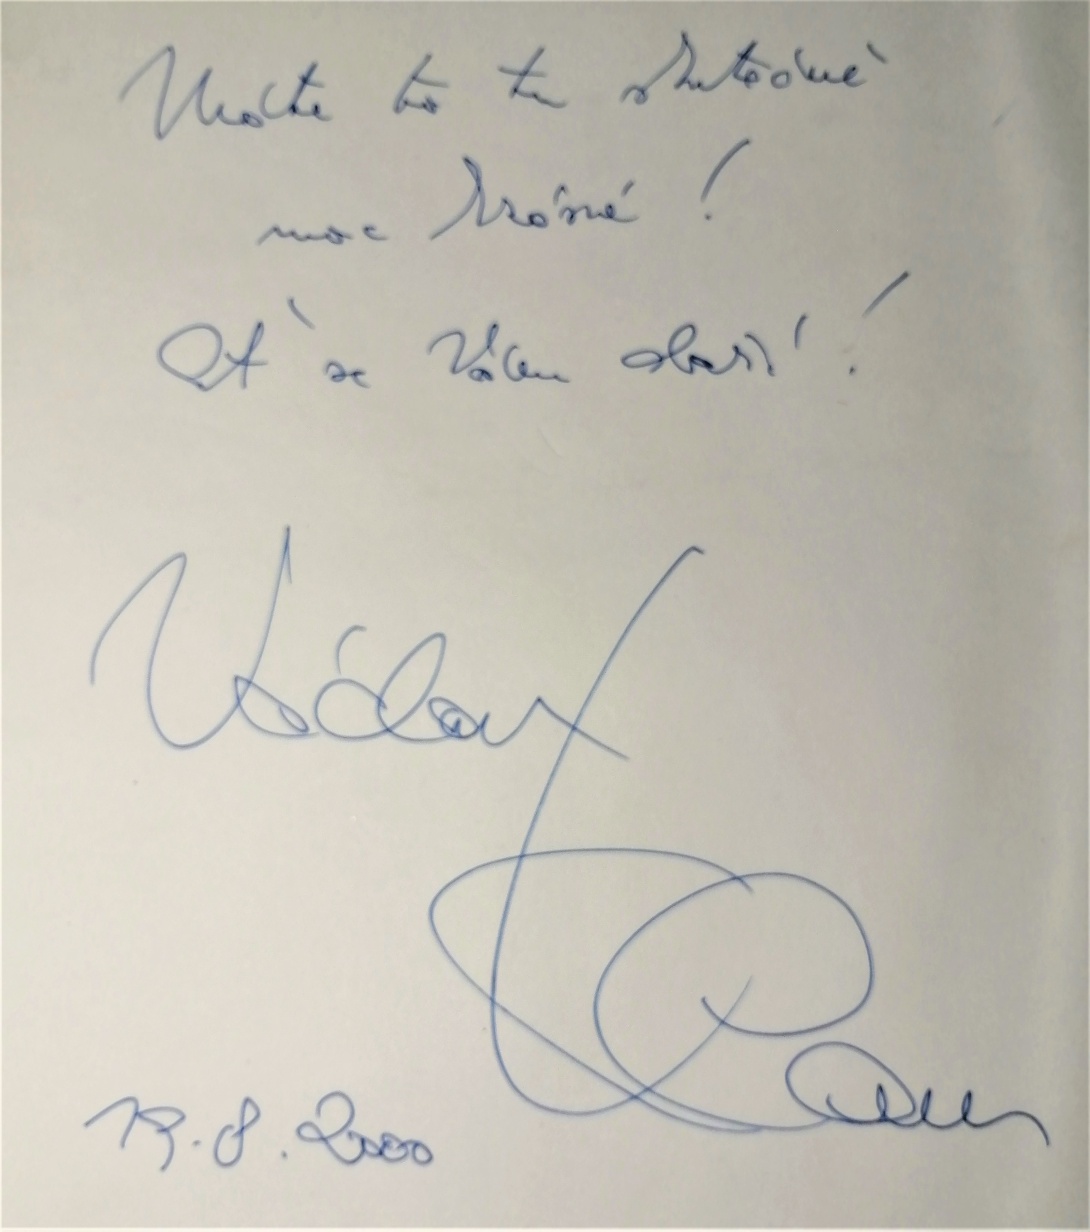 Máte to tu skutečně
moc krásné!
Ať se Vám daří!
Václav
19.8.2000